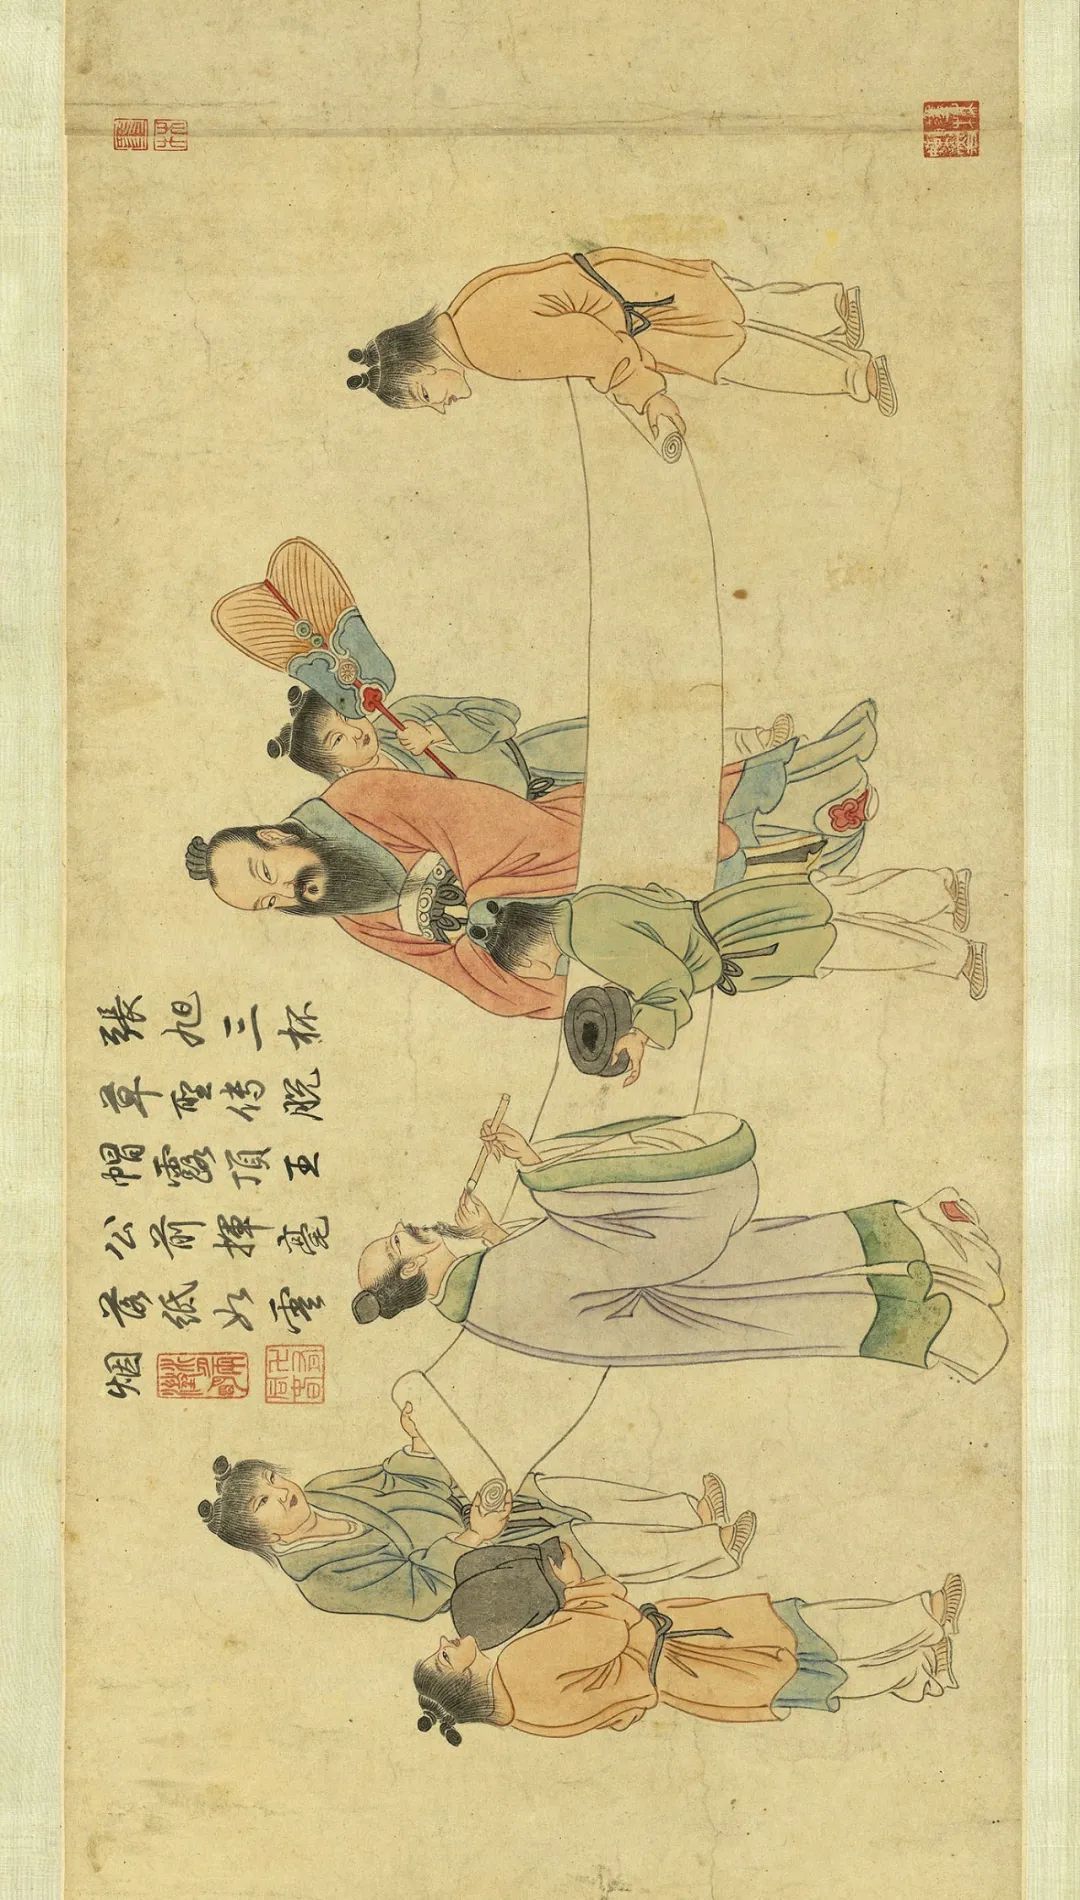 張旭三杯
草聖傳脫
帽露頂王
公前揮毫
落紙如雲
烟